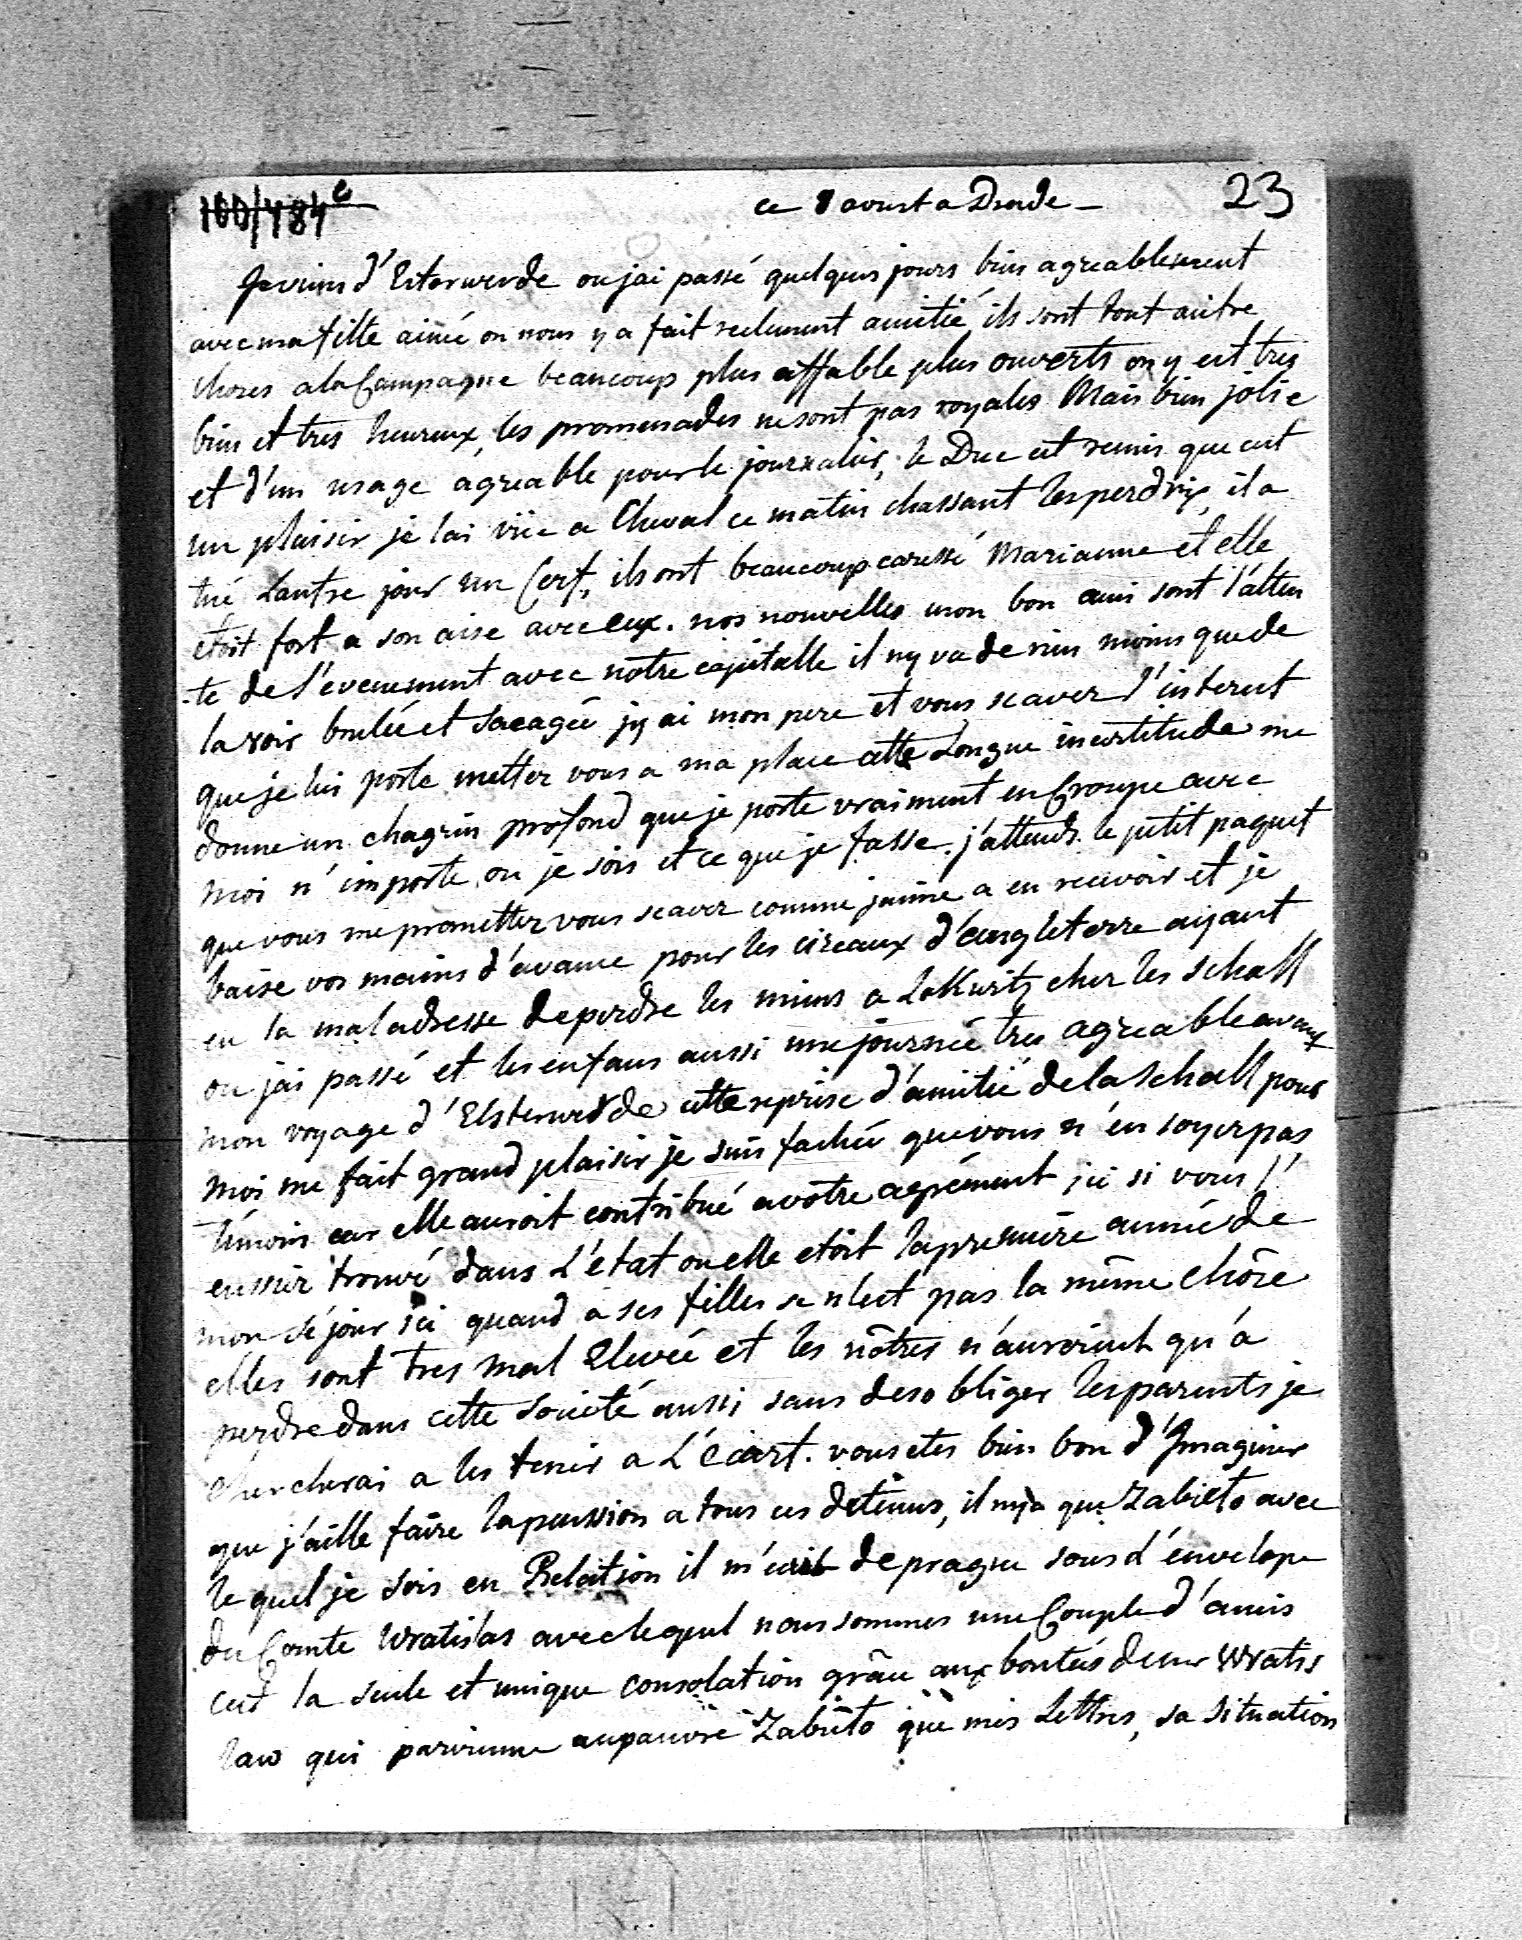 100/484 c
ce 8 aoust a Dresde - 23
Je viens d'Esterwerde ou jai passé quelques jours bien agreablement
avec ma fille ainée on nous y a fait reelement amitié, ils sont tout autre
choses a la Campagne beaucoup plus affable plus ouverts on y est tres
bien et tres heureux, les promenades ne sont pas royales Mais bien jolie
et d'un usage agreable pour le journalier, le Duc est remis que cest
un plaisir je lai vüe a Cheval ce matin chassant les perdrix, il a
tué Lautre jour un Cerf, ils ont beaucoup caressé Marianne et elle
etoit fort a son aise avec eux. nos nouvelles mon bon ami sont l'atten
-te de l'evenement avec notre capitalle il ny va de rien moins que de
la voir brulée et sacagée jy ai mon pere et vous scavez l'interest
que je lui porte mettez vous a ma place cette Longue incertitude me
donne un chagrin profond que je porte vraiment en Croupe avec
moi n'importe ou je sois et ce que je fasse. j'attends le petit paquet
que vous me promettez vous scavez comme jaime a en recevoir et je
baise vos mains d'avance pour les cizeaux d'angleterre aijant
eu la maladresse de perdre les miens a LoKwitz chez les schall
ou jai passé et les enfans aussi une journée tres agreable avant
mon voyage d'Elsterwerde cette reprise d'amitié de la schall pour
moi me fait grand plaisir je suis fachée que vous n'en soyez pas
temoin car elle auroit contribué a votre agrément ici si vous l'
eussiez trouvé dans L'état ou elle etoit la premiere année de
mon séjour ici quand a ses filles se n'est pas la même chose
elles sont tres mal Elevée et les nôtres n'auroient qu'a
perdre dans cette societé aussi sans desobliger les parents je
chercherai a les tenir a L'écart. vous etes bien bon d'Imaginer
que j'aille faire la pension a tous ces detenus, il ny a que Zabieto avec
le quel je sois en Relation il m'ecrit de prague sous d'envelope
du Comte Wratislas avec lequel nous sommes une Couple d'amis
cest la seule et unique consolation grâce aux bontés de mr Wratis
law qui parvienne au pauvre Zabieto que mes Lettres, sa situation